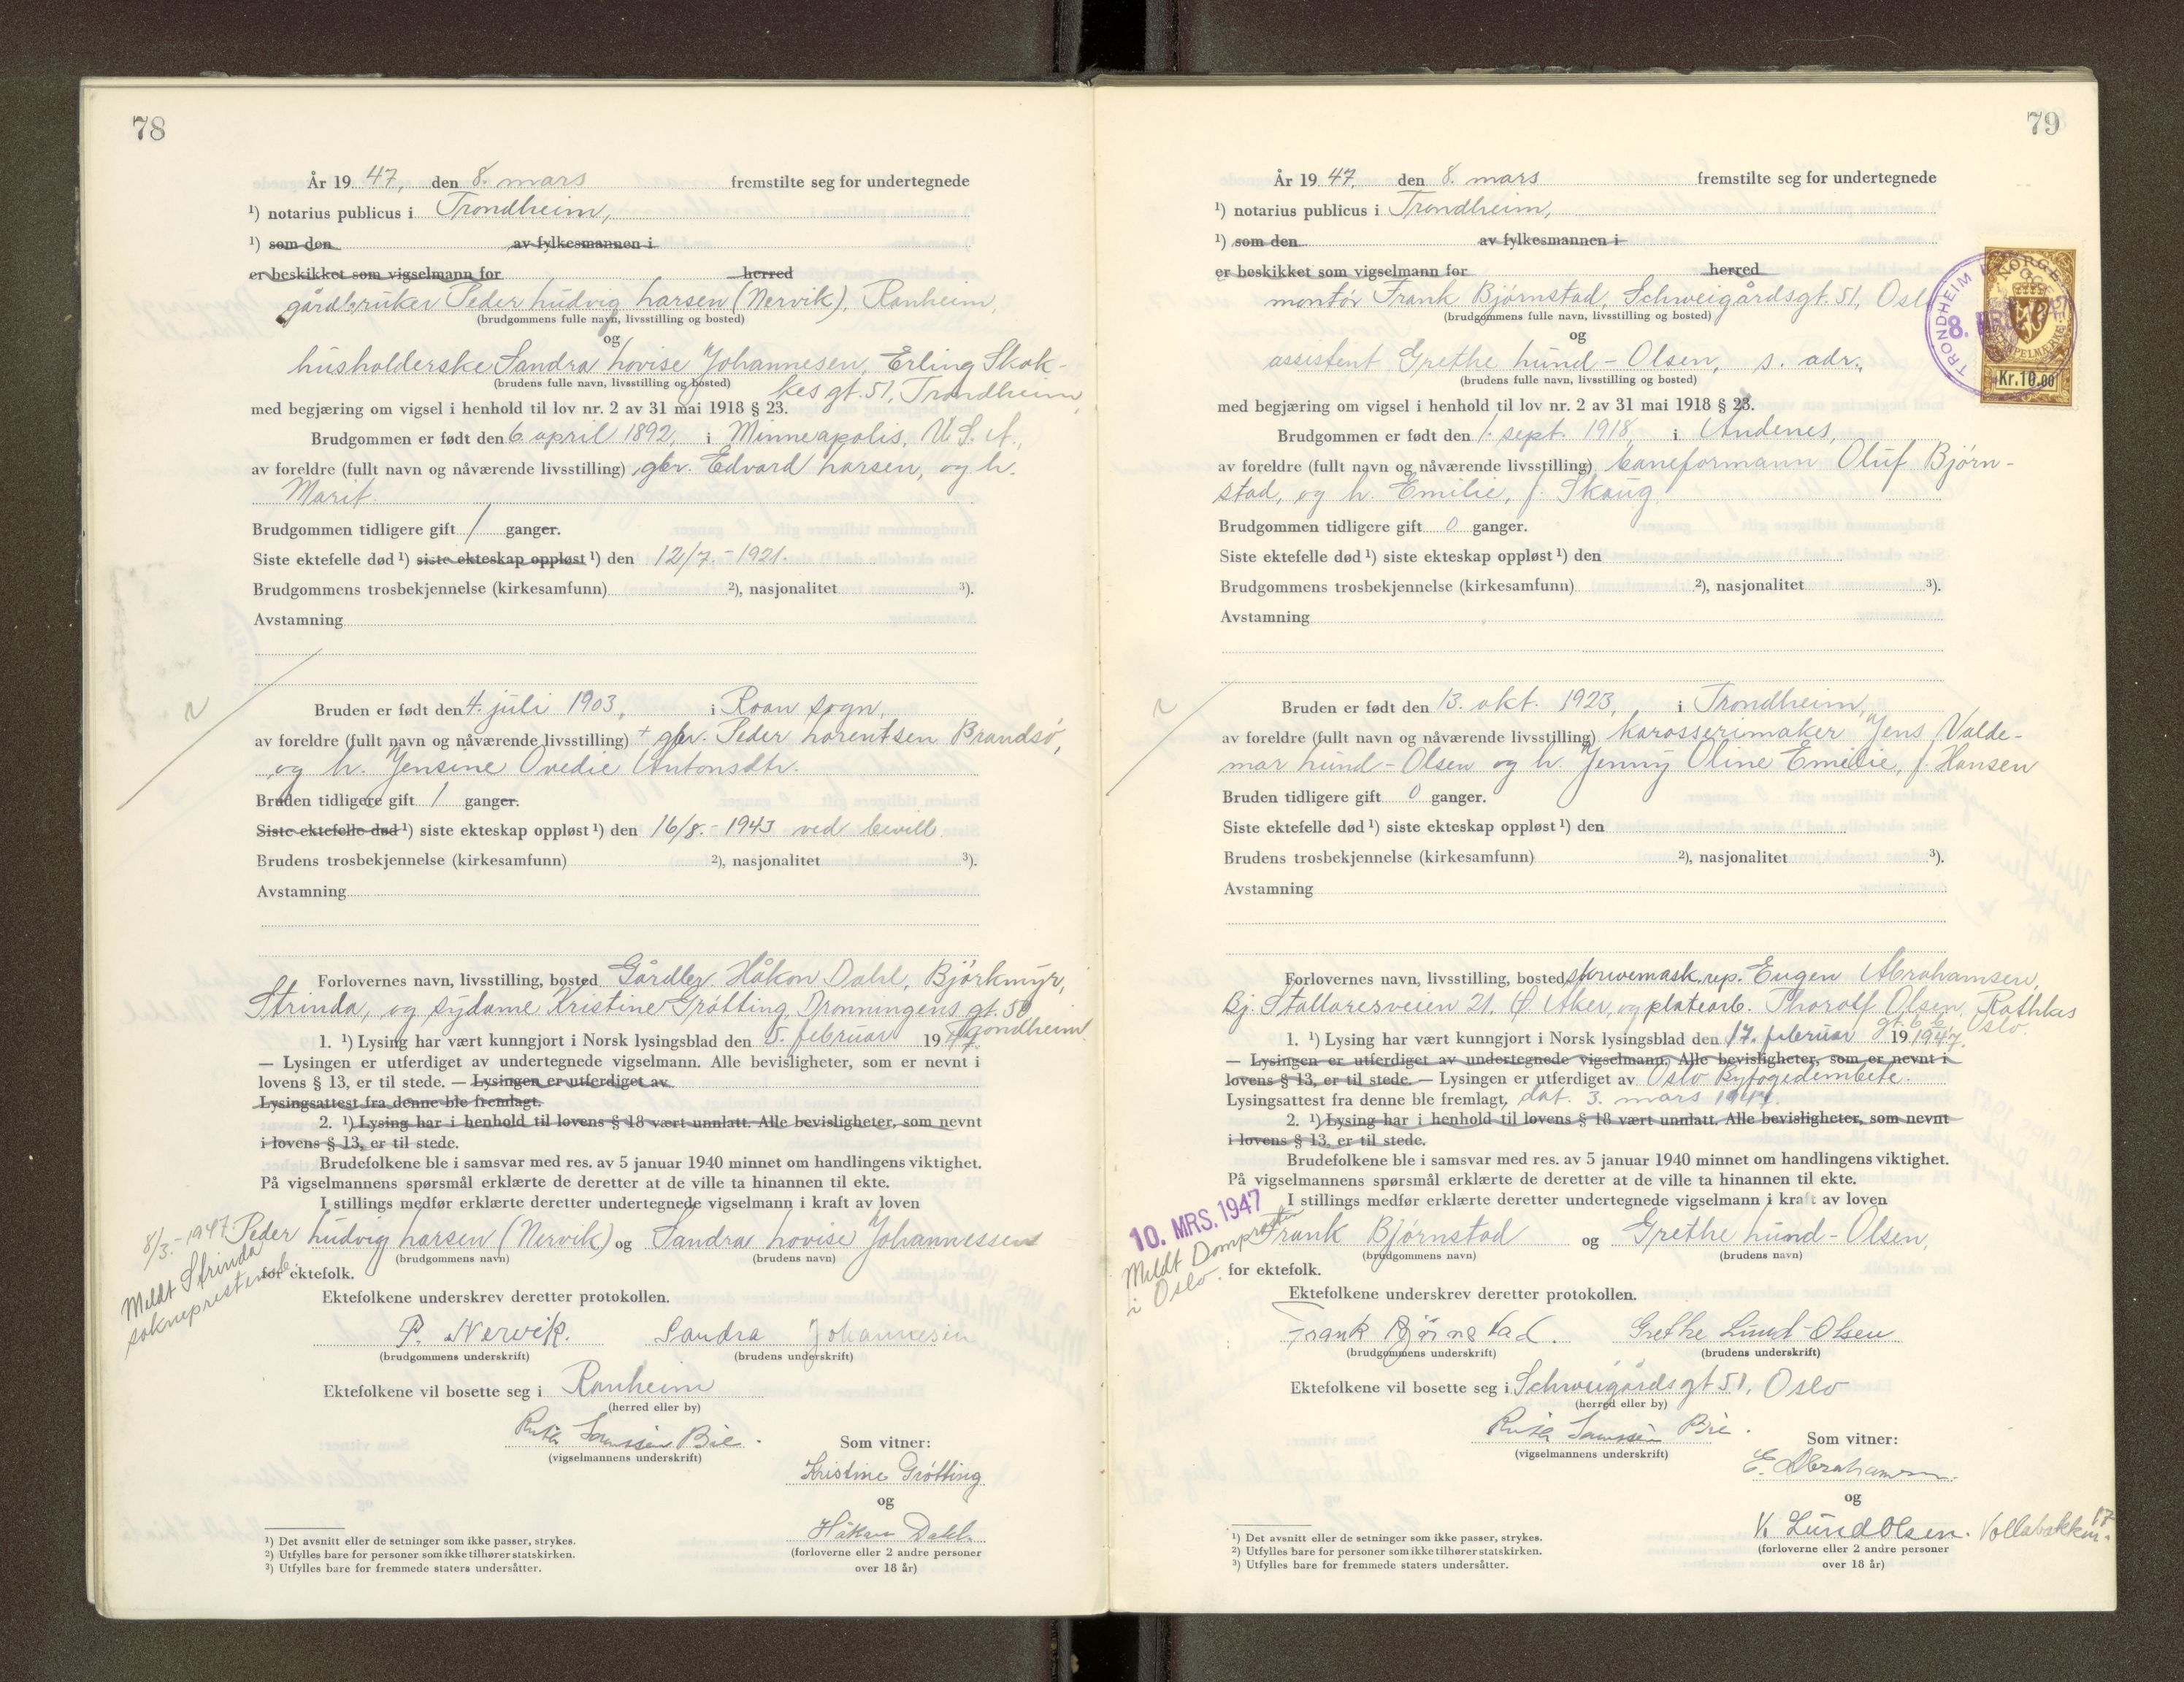 78
År 19 47, den 8. mars fremstilte seg for undertegnede
¹) notarius publicus i Trondheim,
¹) som den av fylkesmannen i
er beskikket som vigselmann for herred
gårdbruker Peder Ludvig Larsen (Nervik), Ranheim,
(brudgommens fulle navn, livsstilling og bosted)
og
husholderske Sandra Lovise Johannesen, Erling Skak-
(brudens fulle navn, livsstilling og bosted)
kes gt. 51, Trondheim,
med begjæring om vigsel i henhold til lov nr. 2 av 31 mai 1918 § 23.
Brudgommen er født den 6. april 1892, i Minneapolis, U.S.A.,
av foreldre (fullt navn og nåværende livsstilling) gbr. Edvard Larsen, og h.
Marit
Brudgommen tidligere gift 1 ganger.
Siste ektefelle død ¹) siste ekteskap oppløst ¹) den 12/7. - 1921.
Brudgommens trosbekjennelse (kirkesamfunn) ²), nasjonalitet ³).
Avstamning
Bruden er født den 4. juli 1903, i Roan sogn,
av foreldre (fullt navn og nåværende livsstilling) + gbr. Peder Lorentsen Brandsø,
og h. Jensine Ovedie Antonsdtr.
Bruden tidligere gift 1 ganger.
Siste ektefelle død ¹) siste ekteskap oppløst ¹) den 16/8. - 1943 ved bevill
Brudens trosbekjennelse (kirkesamfunn) ²), nasjonalitet ³).
Avstamning
Forlovernes navn, livsstilling, bosted Gårdbr. Håkon Dahl, Bjørkmyr,
Strinda, og sydame Kristine Grøtting, Dronningens gt. 50
Trondheim
1. ¹) Lysing har vært kunngjort i Norsk lysingsblad den 5. februar 1947
— Lysingen er utferdiget av undertegnede vigselmann. Alle bevisligheter, som er nevnt i
lovens § 13, er til stede. — Lysingen er utferdiget av
Lysingsattest fra denne ble fremlagt.
2. ¹) Lysing har i henhold til lovens § 18 vært unnlatt. Alle bevisligheter, som nevnt
i lovens § 13, er til stede.
Brudefolkene ble i samsvar med res. av 5 januar 1940 minnet om handlingens viktighet.
På vigselmannens spørsmål erklærte de deretter at de ville ta hinannen til ekte.
I stillings medfør erklærte deretter undertegnede vigselmann i kraft av loven
Peder Ludvig Larsen (Nervik) og Sandra Lovise Johannessen
(brudgommens navn) (brudens navn)
for ektefolk.
8/3.-1947.
Meldt Strinda
sokneprestemb.
Ektefolkene underskrev deretter protokollen.
P. Nervik. Sandra Johannesen
(brudgommens underskrift) (brudens underskrift)
Ektefolkene vil bosette seg i Ranheim
(herred eller by)
Bie.
(vigselmannens underskrift)
Som vitner:
Kristine Grøtting
og
Håkon Dahl.
(forloverne eller 2 andre personer
over 18 år)
¹) Det avsnitt eller de setninger som ikke passer, strykes.
²) Utfylles bare for personer som ikke tilhører statskirken.
³) Utfylles bare for fremmede staters undersåtter.
79
År 19 47. den 8. mars fremstilte seg for undertegnede
¹) notarius publicus i Trondheim,
¹) som den av fylkesmannen i
er beskikket som vigselmann for herred
montør Frank Bjørnstad, Schweigårdsgt. 51, Oslo
(brudgommens fulle navn, livsstilling og bosted)
og
assistent Grethe Lund-Olsen, s. adr.,
(brudens fulle navn, livsstilling og bosted)
TRONDHEIM
NORGE
STEMPELMERKE
Kr.10.00
med begjæring om vigsel i henhold til lov nr. 2 av 31 mai 1918 § 23.
Brudgommen er født den 1. sept. 1918, i Andenes,
av foreldre (fullt navn og nåværende livsstilling) baneformann Oluf Bjørn-
stad, og h. Emilie, f. Skaug
Brudgommen tidligere gift 0 ganger.
Siste ektefelle død ¹) siste ekteskap oppløst ¹) den
Brudgommens trosbekjennelse (kirkesamfunn) ²), nasjonalitet ³).
Avstamning
Bruden er født den 13. okt. 1923, i Trondheim,
av foreldre (fullt navn og nåværende livsstilling) karosserimaker Jens Valde-
mar Lund-Olsen og h. Jenny Oline Emelie, f. Hansen
Bruden tidligere gift 0 ganger.
Siste ektefelle død ¹) siste ekteskap oppløst ¹) den
Brudens trosbekjennelse (kirkesamfunn) ²), nasjonalitet ³).
Avstamning
Forlovernes navn, livsstilling, bosted skrivemask.rep. Eugen Abrahamsen,
Bj. Stallaresveien 21, Ø. Aker, og platearb. Thorolf Olsen, Rathkes
gt. Oslo.
1. ¹) Lysing har vært kunngjort i Norsk lysingsblad den 17. februar 19 1947.
— Lysingen er utferdiget av undertegnede vigselmann. Alle bevisligheter, som er nevnt i
lovens § 13, er til stede. — Lysingen er utferdiget av Oslo Byfogedembete.
Lysingsattest fra denne ble fremlagt, dat. 3. mars 1947.
2. ¹) Lysing har i henhold til lovens § 18 vært unnlatt. Alle bevisligheter, som nevnt
i lovens § 13, er til stede.
Brudefolkene ble i samsvar med res. av 5 januar 1940 minnet om handlingens viktighet.
På vigselmannens spørsmål erklærte de deretter at de ville ta hinannen til ekte.
I stillings medfør erklærte deretter undertegnede vigselmann i kraft av loven
10. MRS. 1947
Meldt Domprosten
i Oslo.
Frank Bjørnstad og Grethe Lund-Olsen,
(brudgommens navn) (brudens navn)
for ektefolk.
Ektefolkene underskrev deretter protokollen.
Frank Bjørnstad. Grethe Lund-Olsen
(brudgommens underskrift) (brudens underskrift)
Ektefolkene vil bosette seg i Schweigårdsgt 51, Oslo
(herred eller by)
Bie.
(vigselmannens underskrift)
Som vitner:
E. Abrahamsen.
og
V. Lund Olsen. Vollabakken 17.
(forloverne eller 2 andre personer
over 18 år)
¹) Det avsnitt eller de setninger som ikke passer, strykes.
²) Utfylles bare for personer som ikke tilhører statskirken.
³) Utfylles bare for fremmede staters undersåtter.